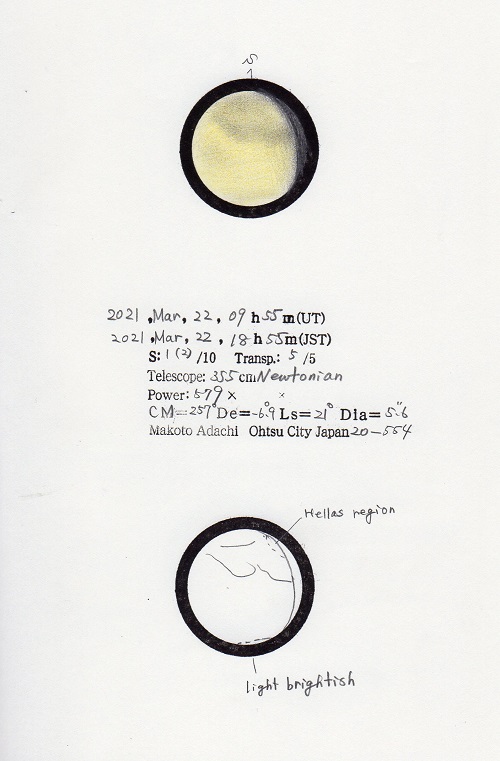 S
2021, Mar, 22, 09 h 55 m(UT)
2021, Mar, 22, 18 h 55 m(JST)
S: 1 (2) /10 Transp.: 5 /5
Telescope: 355 cm Newtonian
Power: 579 × ×
CM=257° De=-6.9° Ls=21° Dia=5.6"
Makoto Adachi Ohtsu City Japan 20-554
Hellas region
light brightish